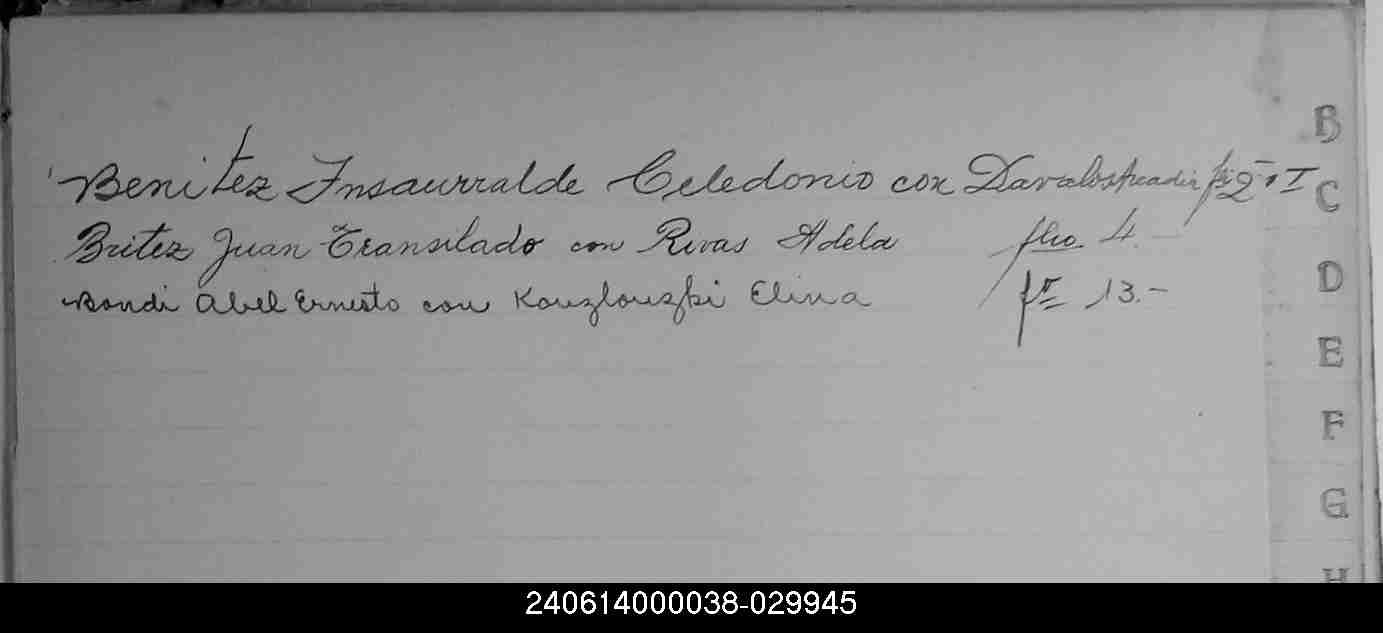 Benitez Insaurralde Celedonio con Davalos fo 2.- I
Britez Juan Transilado con Rivas Adela flio 4.-
Bondi Abel Ernesto con Kouzlouzki Elina fo 13.-
B
C
D
E
F
G
H
240614000038-029945